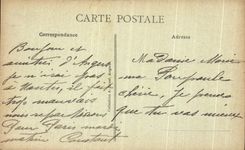 CARTE POSTALE
Correspondance
Adresse
Bonjour et
amitiés d'Angers
je n'irai pas
à Nantes, il fait
trop mauvais
nous repartirons
Pour Paris mardi
matin Constant
Madame Marie
ma Poupoule
chérie, Je pense
que tu vas mieux